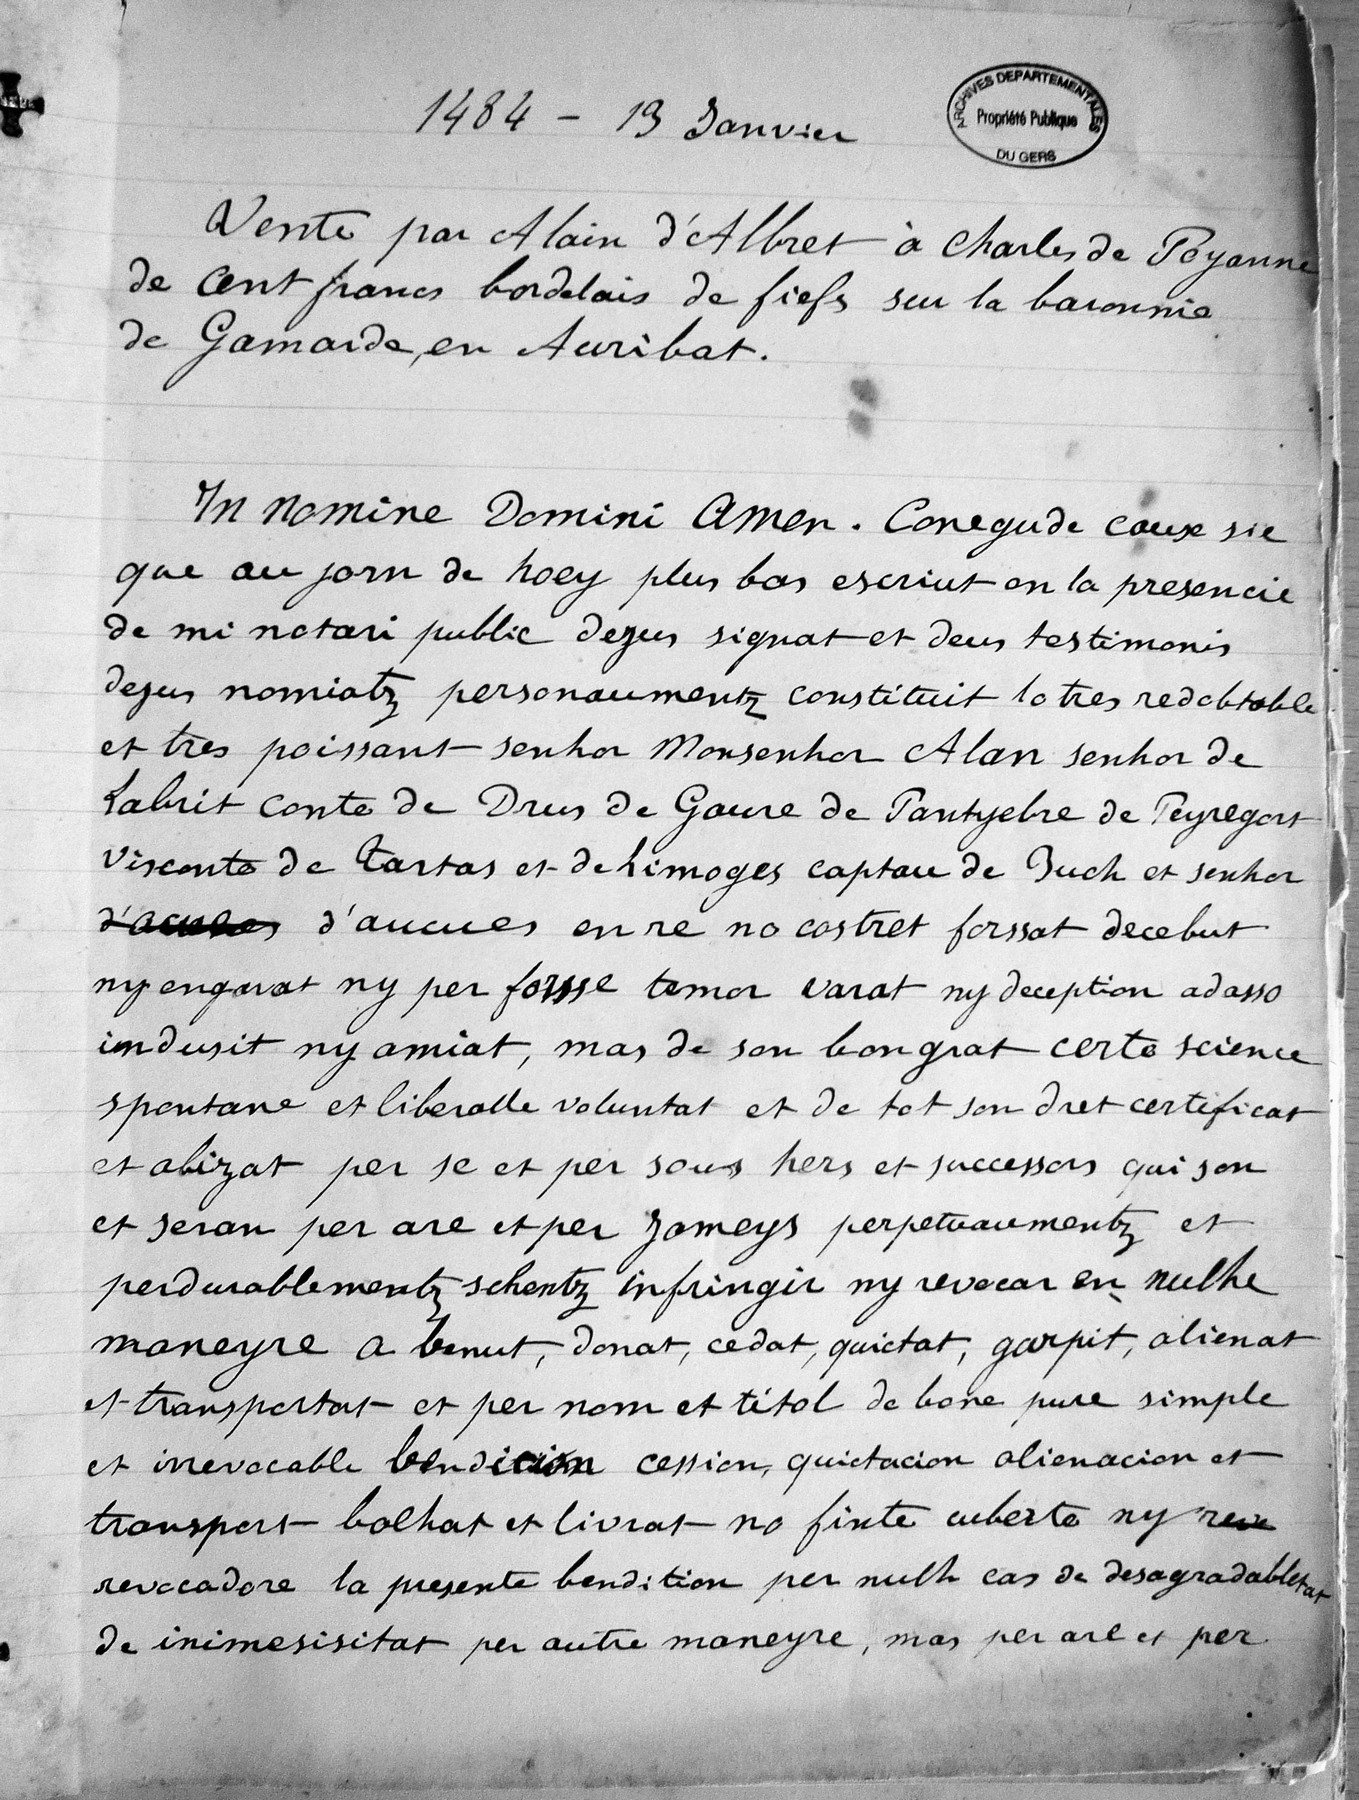 1484 - 13 Janvier
ARCHIVES DEPARTEMENTALES
Propriété Publique
DU GERS
Vente par Alain d'Albret à Charles de Poyanne
de cent francs bordelais de fiefs sur la baronnie
de Gamarde, en Auribat.
In nomine Domini Amen. Conegude cause sie
que au jorn de hoey plus bas escriut en la presencie
de mi notari public dejus signat et deus testimonis
dejus nomiatz personaumentz constituit lo tres redobtable
et tres poissant senhor Monsenhor Alan senhor de
Labrit conte de Dreus de Gaure de Pantyebre de Peyregort
Visconte de Tartas et de Limoges captau de Buch et senhor
d'aucues en re no costret forssat decebut
ny enganat ny per forsse temor varat ny deception adasso
indusit ny amiat, mas de son bon grat certe science
spontane et liberalle voluntat et de tot son dret certificat
et abizat per se et per sous hers et successors qui son
et seran per are et per jameys perpetuaumentz et
perdurablementz schentz infringir ny revocar en nulhe
maneyre a benut, donat, cedat, quictat, garpit, alienat
et transportat et per nom et titol de bone pure simple
et inrevocable bendicion cession, quictacion alienacion et
transport balhat et livrat no finte cuberte ny
revocadore la presente bendition per nulh cas de desagradabletat
de inimesisitat per autre maneyre, mas per are et per